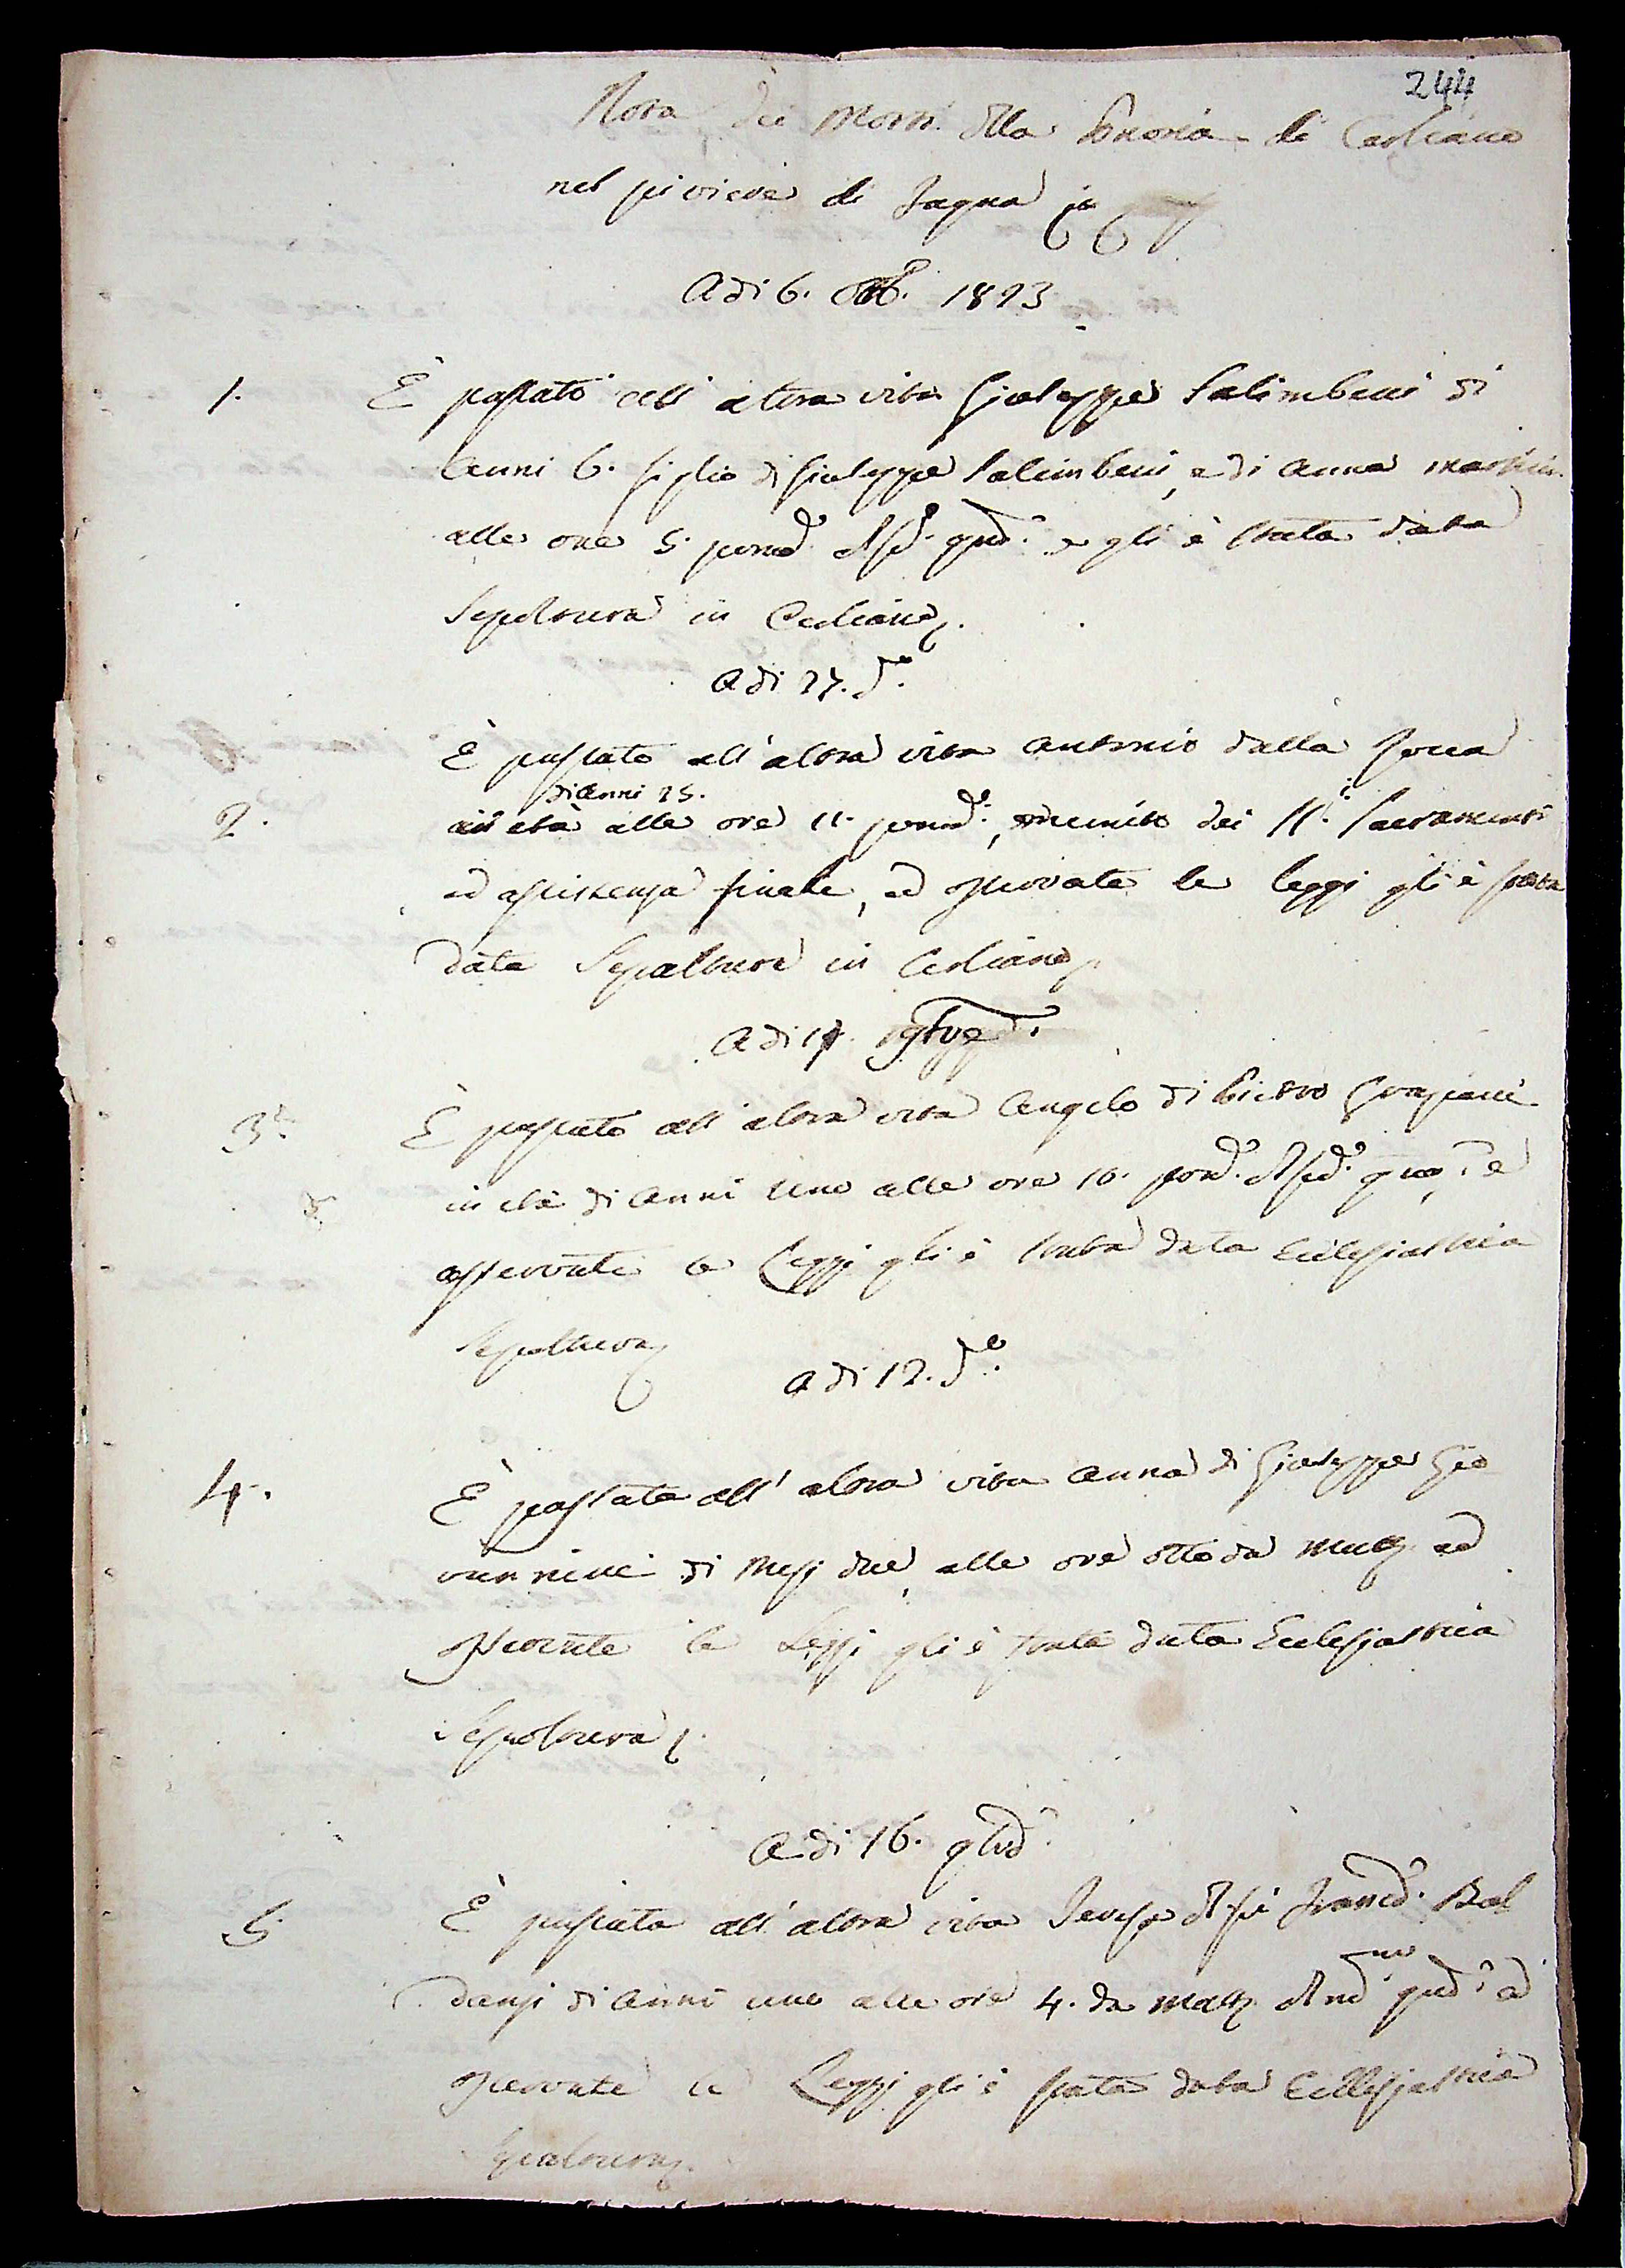 244
Nota dei Morti della di Casliano
nel piviere di Fagna
A di 6. 1823
1. È passato all' altra vita Giuseppe Salimbeni di
Anni 6. figlio di Giuseppe Salimbeni, e di Anna
alle ore 5. e gli è stata data
Sepoltura in Casliano.
A di 27. do.
È passato all' altra vita Antonio dalla
di anni 25.
2. in età alle ore 11. munito dei SS. Sacramenti
ed assistenza finale, ed osservate le leggi gli è stata
data Sepoltura in Casliano
A di
3. È passato all' altra vita Angelo di Pietro Graziani
in età di Anni uno alle ore 10. e
osservate le Leggi gli è stata data Ecclesiastica
Sepoltura
A di 12. do.
4. È passata all' altra vita Anna di Giuseppe Gio
vannini di Mesi due, alle ore otto da ed
osservate le Leggi gli è stata data Ecclesiastica
Sepoltura.
A di 16.
5. È passata all' altra vita Bal
danzi di Anni uno alle ore 4. da ed
osservate le Leggi gli è stata data Ecclesiastica
Sepoltura.